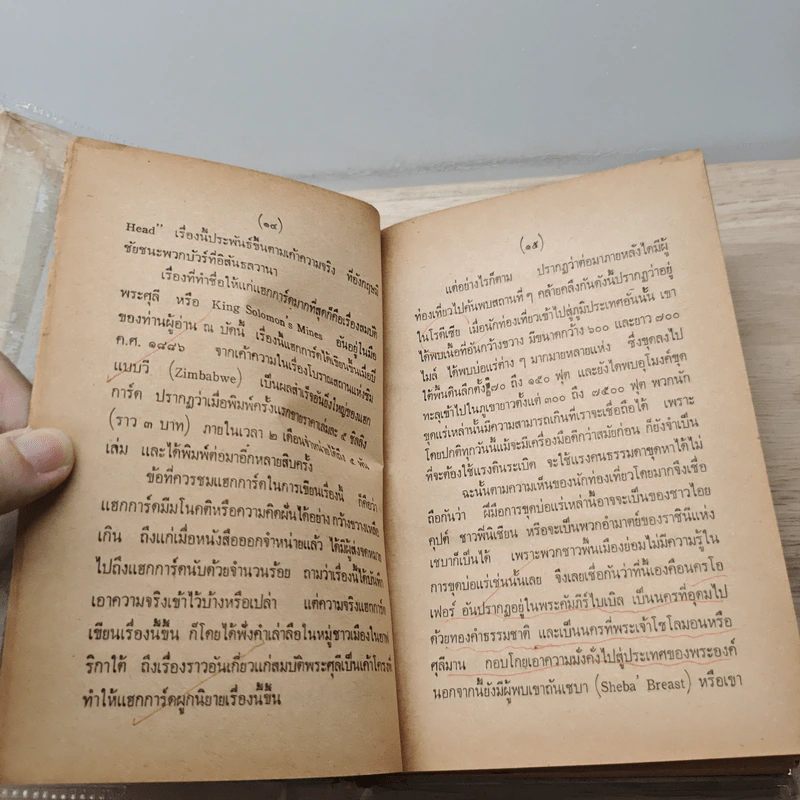 (๑๔)
Head" เรื่องนี้ประพันธ์ขึ้นตามเค้าความจริง ที่อังกฤษมี
ชัยชนะพวกบัวร์ที่อิสันธลวานา
เรื่องที่ทำชื่อให้แก่แฮกการ์ดมากที่สุดก็คือเรื่องสมบัติ
พระศุลี หรือ King Solomon's Mines อันอยู่ในมือ
ของท่านผู้อ่าน ณ บัดนี้ เรื่องนี้แฮกการ์ดได้เขียนขึ้นเมื่อปี
ค.ศ. ๑๘๘๖ จากเค้าความในเรื่องโบราณสถานแห่งซิม
แบบวี (Zimbabwe) เป็นผลสำเร็จอันยิ่งใหญ่ของแฮก
การ์ด ปรากฏว่าเมื่อพิมพ์ครั้งแรกขายราคาเล่มละ ๕ ชิลลิง
(ราว ๓ บาท) ภายในเวลา ๒ เดือนจำหน่ายได้ถึง ๕ พัน
เล่ม และได้พิมพ์ต่อมาอีกหลายสิบครั้ง
ข้อที่ควรชมแฮกการ์ดในการเขียนเรื่องนี้ ก็คือว่า
แฮกการ์ดมีมโนคติหรือความคิดฝันได้อย่าง กว้างขวางเหลือ
เกิน ถึงแก่เมื่อหนังสือออกจำหน่ายแล้ว ได้มีผู้ส่งจดหมาย
ไปถึงแฮกการ์ดนับด้วยจำนวนร้อย ถามว่าเรื่องนี้ได้บันทึก
เอาความจริงเข้าไว้บ้างหรือเปล่า แต่ความจริงแฮกการ์ด
เขียนเรื่องนี้ขึ้น ก็โดยได้ฟังคำเล่าลือในหมู่ชาวเมืองในอาฟ
ริกาใต้ ถึงเรื่องราวอันเกี่ยวแก่สมบัติพระศุลีเป็นเค้าโครงที่
ทำให้แฮกการ์ดผูกนิยายเรื่องนี้ขึ้น
(๑๕)
แต่อย่างไรก็ตาม ปรากฏว่าต่อมาภายหลังได้มีผู้
ท่องเที่ยวไปค้นพบสถานที่ ๆ คล้ายคลึงกันดังนี้ปรากฏว่าอยู่
ในโรดีเซีย เมื่อนักท่องเที่ยวเข้าไปสู่ภูมิประเทศอันนั้น เขา
ได้พบเนื้อที่อันกว้างขวาง มีขนาดกว้าง ๖๐๐ และยาว ๗๐๐
ไมล์ ได้พบบ่อแร่ต่าง ๆ มากมายหลายแห่ง ซึ่งขุดลงไป
ใต้พื้นดินลึกตั้ง ๗๐ ถึง ๑๕๐ ฟุต และยังได้พบอุโมงค์ขุด
ทะลุเข้าไปในภูเขายาวตั้งแต่ ๓๐๐ ถึง ๗๕๐๐ ฟุต พวกนัก
ขุดแร่เหล่านั้นมีความสามารถเกินที่เราจะเชื่อถือได้ เพราะ
โดยปกติทุกวันนี้แม้จะมีเครื่องมือดีกว่าสมัยก่อน ก็ยังจำเป็น
ที่จะต้องใช้แรงดินระเบิด จะใช้แรงคนธรรมดาขุดหาได้ไม่
ฉะนั้นตามความเห็นของนักท่องเที่ยวโดยมากจึงเชื่อ
ถือกันว่า ฝีมือการขุดบ่อแร่เหล่านี้อาจจะเป็นของชาวไอย
คุปต์ ชาวฟีนิเชียน หรือจะเป็นพวกอำมาตย์ของราชินีแห่ง
เชบาก็เป็นได้ เพราะพวกชาวพื้นเมืองย่อมไม่มีความรู้ใน
การขุดบ่อแร่เช่นนั้นเลย จึงเลยเชื่อกันว่าที่นี้เองคือนครโอ
เฟอร์ อันปรากฏอยู่ในพระคัมภีร์ไบเบิล เป็นนครที่อุดมไป
ด้วยทองคำธรรมชาติ และเป็นนครที่พระเจ้าโซโลมอนหรือ
ศุลีมาน กอบโกยเอาความมั่งคั่งไปสู่ประเทศของพระองค์
นอกจากนี้ยังมีผู้พบเขาถันเชบา (Sheba' Breast) หรือเขา